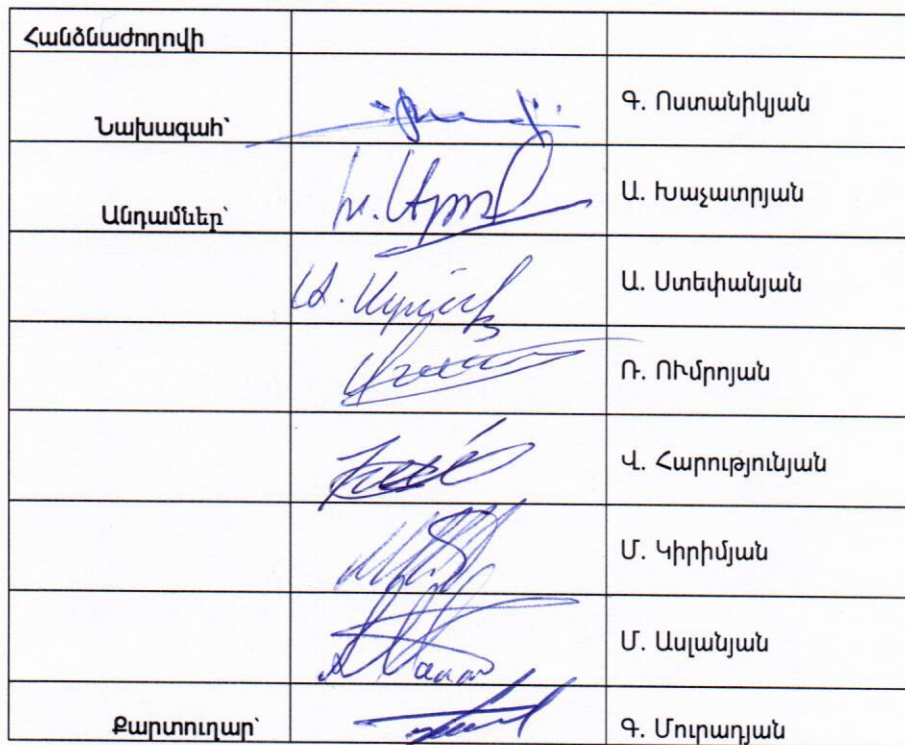 Հանձնաժողովի
Նախագահ՝ Գ. Ոստանիկյան
Անդամներ՝ Ա. Խաչատրյան
Ա. Ստեփանյան
Ռ. ՈՒմրոյան
Վ. Հարությունյան
Մ. Կիրիմյան
Մ. Ասլանյան
Քարտուղար՝ Գ. Մուրադյան